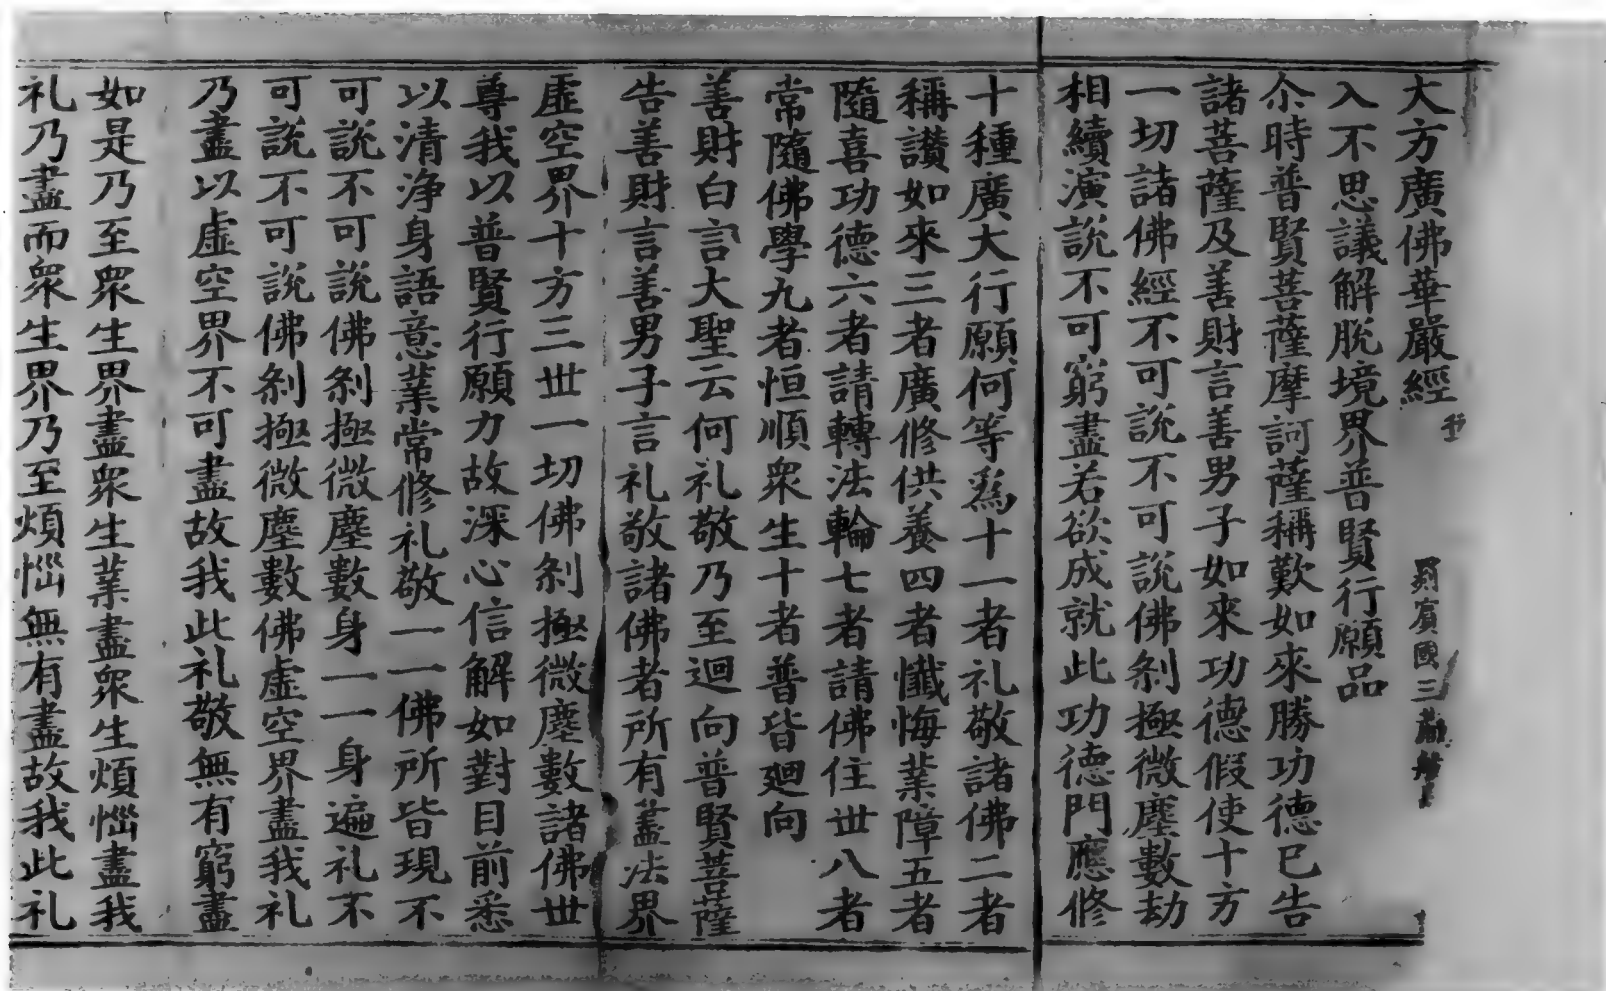 大方廣佛華嚴經
罽賓國三藏
入不思議解脫境界普賢行願品
尒時普賢菩薩摩訶薩稱歎如來勝功德已告
諸菩薩及善財言善男子如來功德假使十方
一切諸佛經不可說不可說佛剎極微塵數劫
相續演說不可窮盡若欲成就此功德門應修
十種廣大行願何等爲十一者礼敬諸佛二者
稱讃如來三者廣修供養四者懺悔業障五者
隨喜功德六者請轉法輪七者請佛住世八者
常隨佛學九者恒順衆生十者普皆迴向
善財白言大聖云何礼敬乃至迴向普賢菩薩
告善財言善男子言礼敬諸佛者所有盡法界
虛空界十方三世一切佛剎極微塵數諸佛世
尊我以普賢行願力故深心信解如對目前悉
以清淨身語意業常修礼敬一一佛所皆現不
可說不可說佛剎極微塵數身一一身遍礼不
可說不可說佛剎極微塵數佛虛空界盡我礼
乃盡以虛空界不可盡故我此礼敬無有窮盡
如是乃至衆生界盡衆生業盡衆生煩惱盡我
礼乃盡而衆生界乃至煩惱無有盡故我此礼